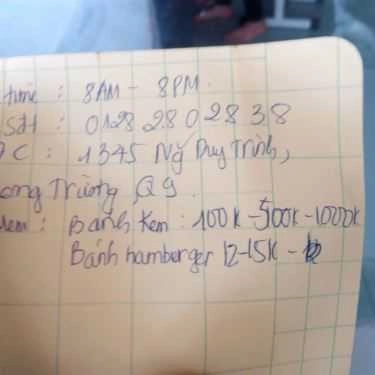 time : 8AM - 8PM.
SĐT : 01282802838
ĐC : 1345 Ng̃ Duy Trinh,
ong Trường Q9.
Item : Bánh kem : 100k - 500k - 1000k
Bánh hamburger 12 - 15k -